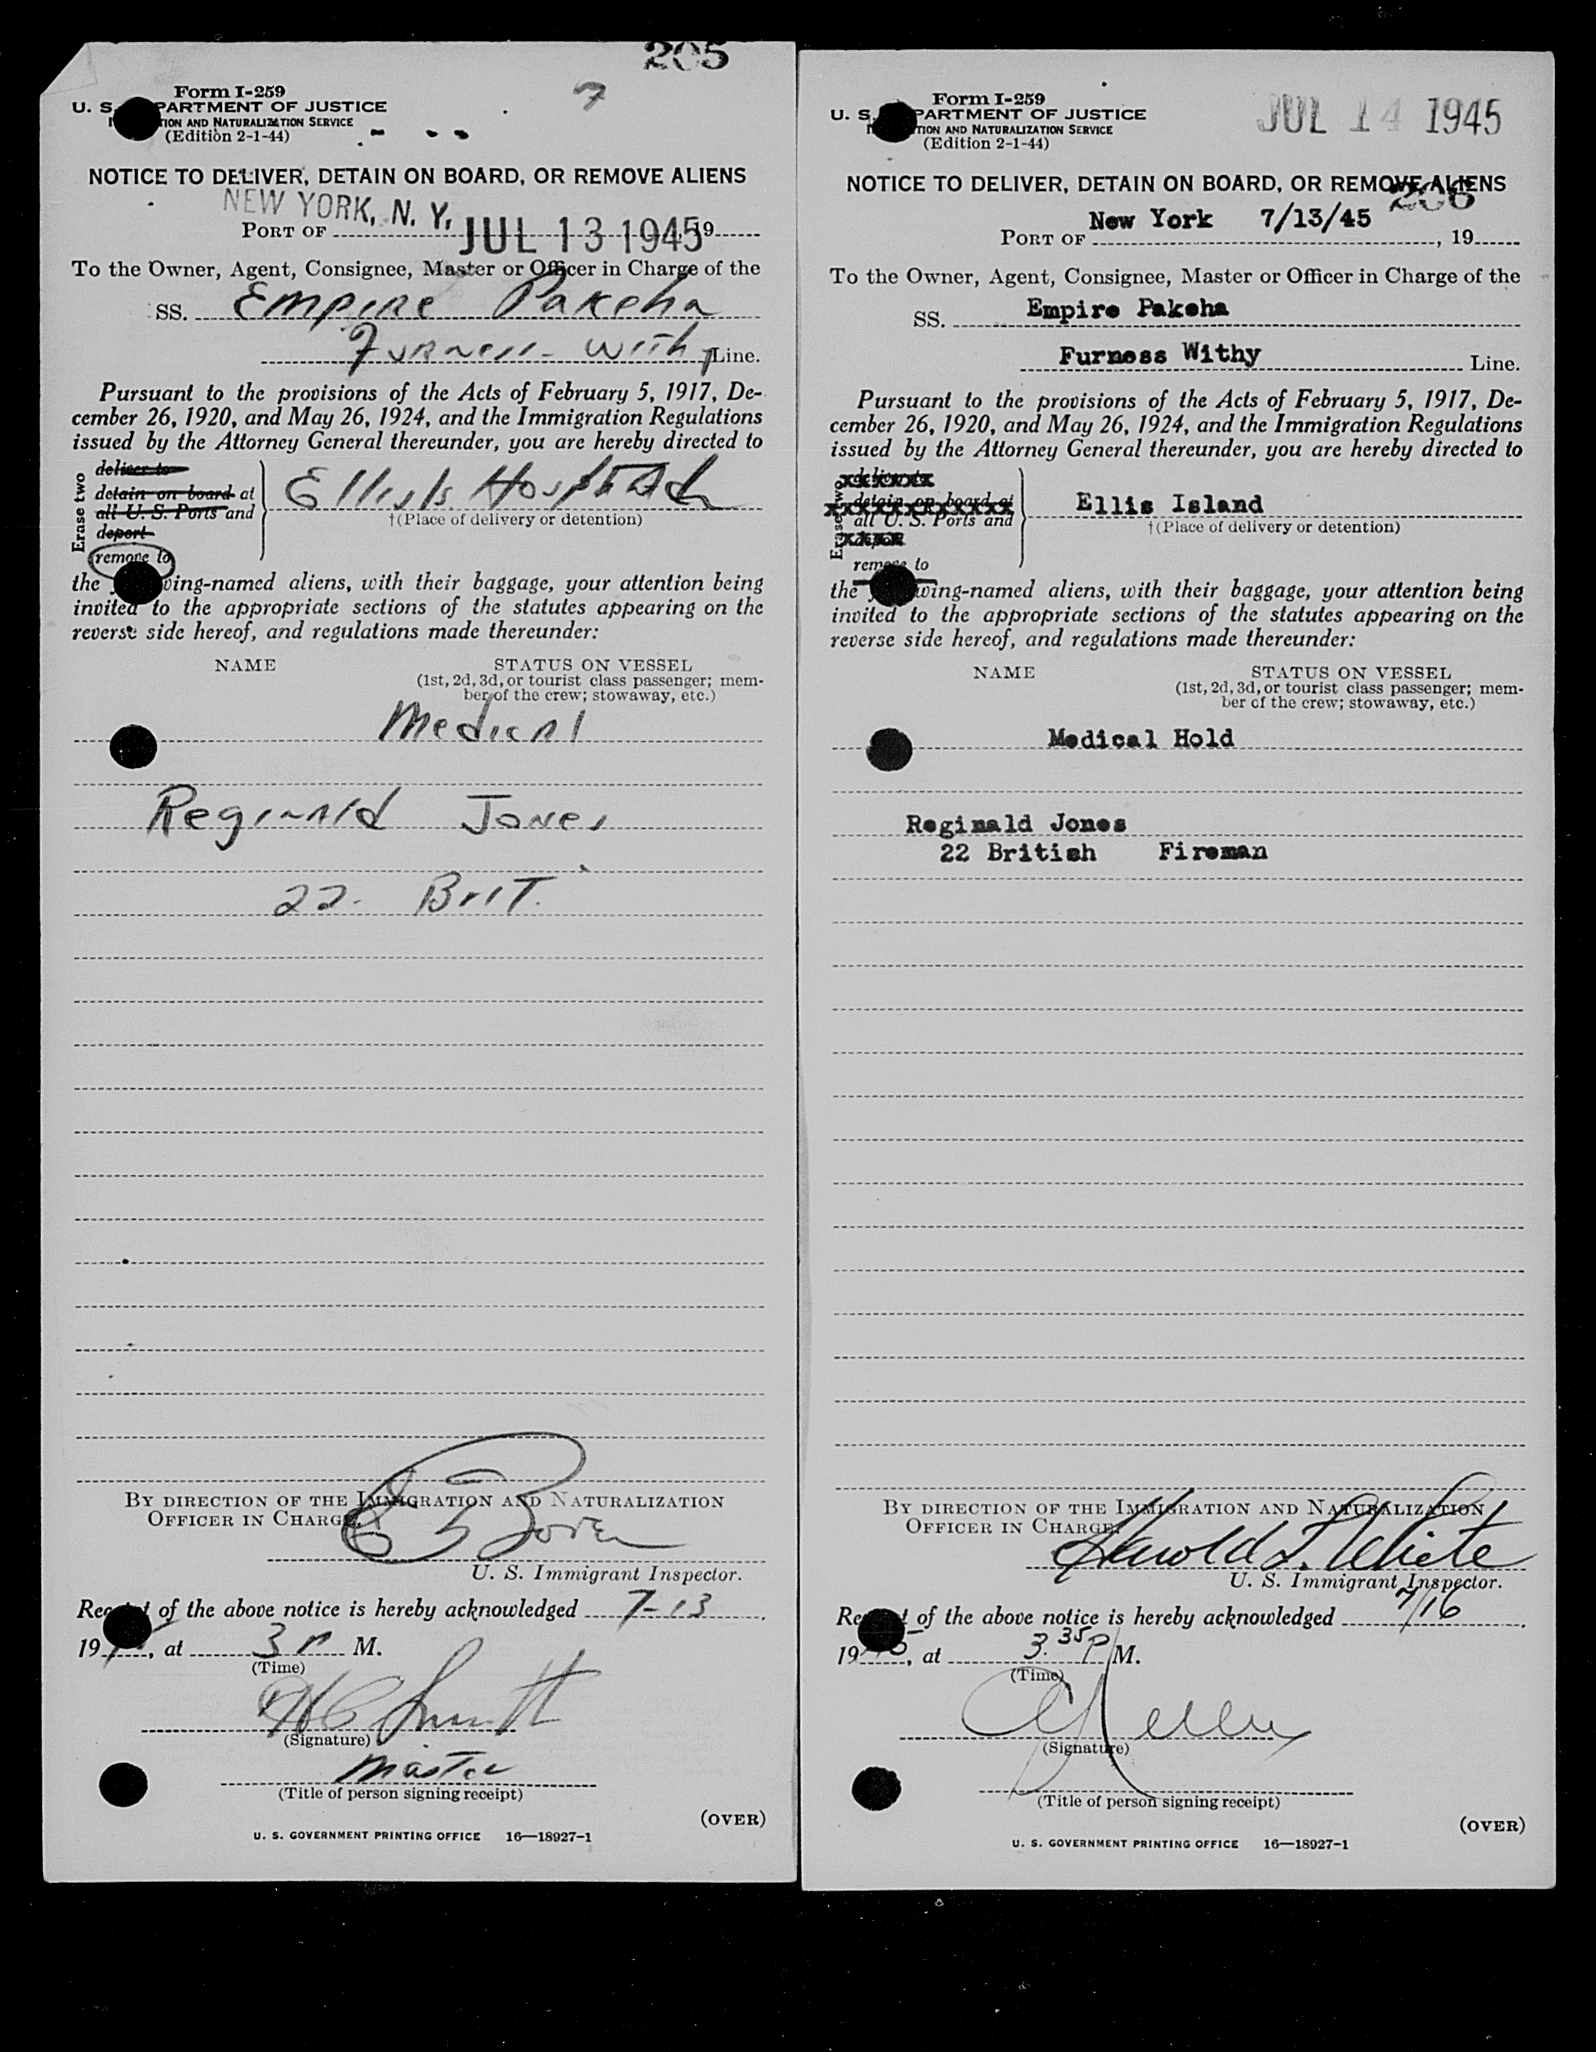 205
7
Form I-259
U. S. PARTMENT OF JUSTICE
TION AND NATURALIZATION SERVICE
(Edition 2-1-44)
NOTICE TO DELIVER, DETAIN ON BOARD, OR REMOVE ALIENS
NEW YORK, N. Y.
PORT OF JUL 13 1945 9
To the Owner, Agent, Consignee, Master or Officer in Charge of the
SS. Empire Pakeha
Furness Withy Line.
Pursuant to the provisions of the Acts of February 5, 1917, De-
cember 26, 1920, and May 26, 1924, and the Immigration Regulations
issued by the Attorney General thereunder, you are hereby directed to
Erase two
deliver to
detain on board at
all U. S. Ports and
deport
remove to
Ellis Is. Hospital
†(Place of delivery or detention)
the wing-named aliens, with their baggage, your attention being
invited to the appropriate sections of the statutes appearing on the
reverse side hereof, and regulations made thereunder:
NAME STATUS ON VESSEL
(1st, 2d, 3d, or tourist class passenger; mem-
ber of the crew; stowaway, etc.)
Medical
Reginald Jones
22. Brit.
BY DIRECTION OF THE IMMIGRATION AND NATURALIZATION
OFFICER IN CHARGE.
U. S. Immigrant Inspector.
Receipt of the above notice is hereby acknowledged 7-13
19 , at 3 P M.
(Time)
(Signature)
Master
(Title of person signing receipt)
(OVER)
U. S. GOVERNMENT PRINTING OFFICE 16—18927-1
Form I-259
U. S. PARTMENT OF JUSTICE
TION AND NATURALIZATION SERVICE
(Edition 2-1-44)
JUL 14 1945
NOTICE TO DELIVER, DETAIN ON BOARD, OR REMOVE ALIENS
206
PORT OF New York 7/13/45, 19
To the Owner, Agent, Consignee, Master or Officer in Charge of the
SS. Empire Pakeha
Furness Withy Line.
Pursuant to the provisions of the Acts of February 5, 1917, De-
cember 26, 1920, and May 26, 1924, and the Immigration Regulations
issued by the Attorney General thereunder, you are hereby directed to
Erase two
deliver to
detain on board at
all U. S. Ports and
deport
remove to
Ellis Island
†(Place of delivery or detention)
the wing-named aliens, with their baggage, your attention being
invited to the appropriate sections of the statutes appearing on the
reverse side hereof, and regulations made thereunder:
NAME STATUS ON VESSEL
(1st, 2d, 3d, or tourist class passenger; mem-
ber of the crew; stowaway, etc.)
Medical Hold
Reginald Jones
22 British Fireman
BY DIRECTION OF THE IMMIGRATION AND NATURALIZATION
OFFICER IN CHARGE.
Harold L. White
U. S. Immigrant Inspector.
Receipt of the above notice is hereby acknowledged 7/16
19 , at 3.35 P M.
(Time)
(Signature)
(Title of person signing receipt)
(OVER)
U. S. GOVERNMENT PRINTING OFFICE 16—18927-1